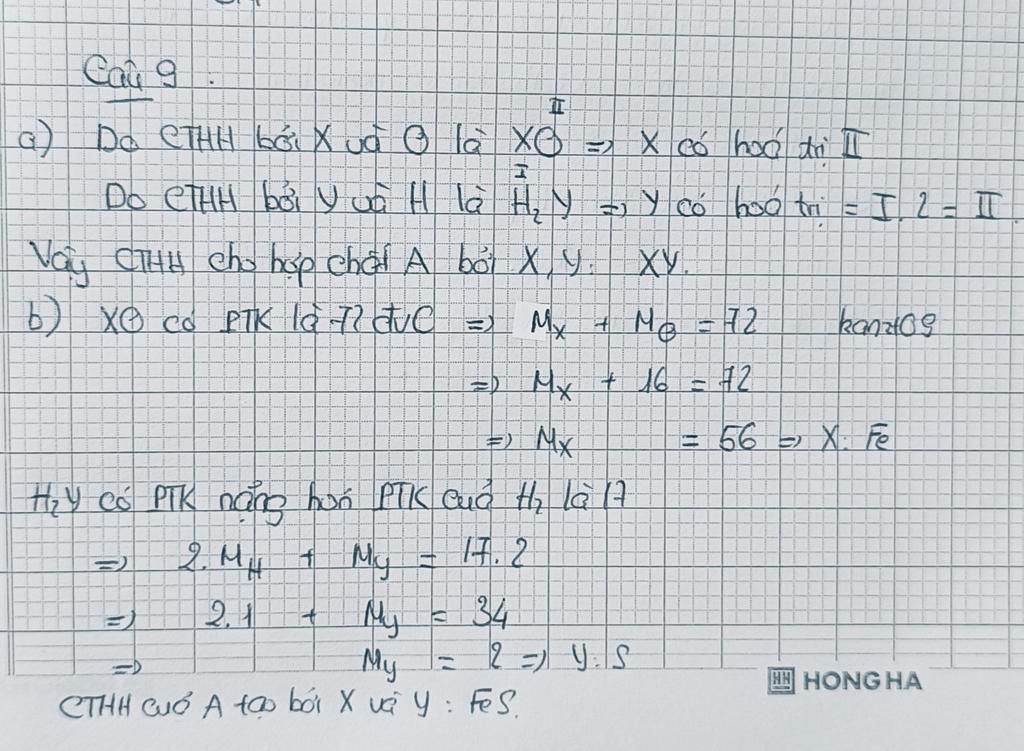 Câu 9.
a) Do CTHH bởi X và O là XO^II => X có hoá trị II
Do CTHH bởi Y và H là H^I₂Y => Y có hoá trị = I.2 = II.
Vậy CTHH cho hợp chất A bởi X, Y: XY.
b) XO có PTK là 72 đvC => M_X + M_O = 72 kanzt09
=> M_X + 16 = 72
=> M_X = 56 => X: Fe
H₂Y có PTK nặng hơn PTK của H₂ là 17
=> 2.M_H + M_Y = 17.2
=> 2.1 + M_Y = 34
=> M_Y = 2 => Y: S
HH HONG HA
CTHH của A tạo bởi X và Y: FeS.